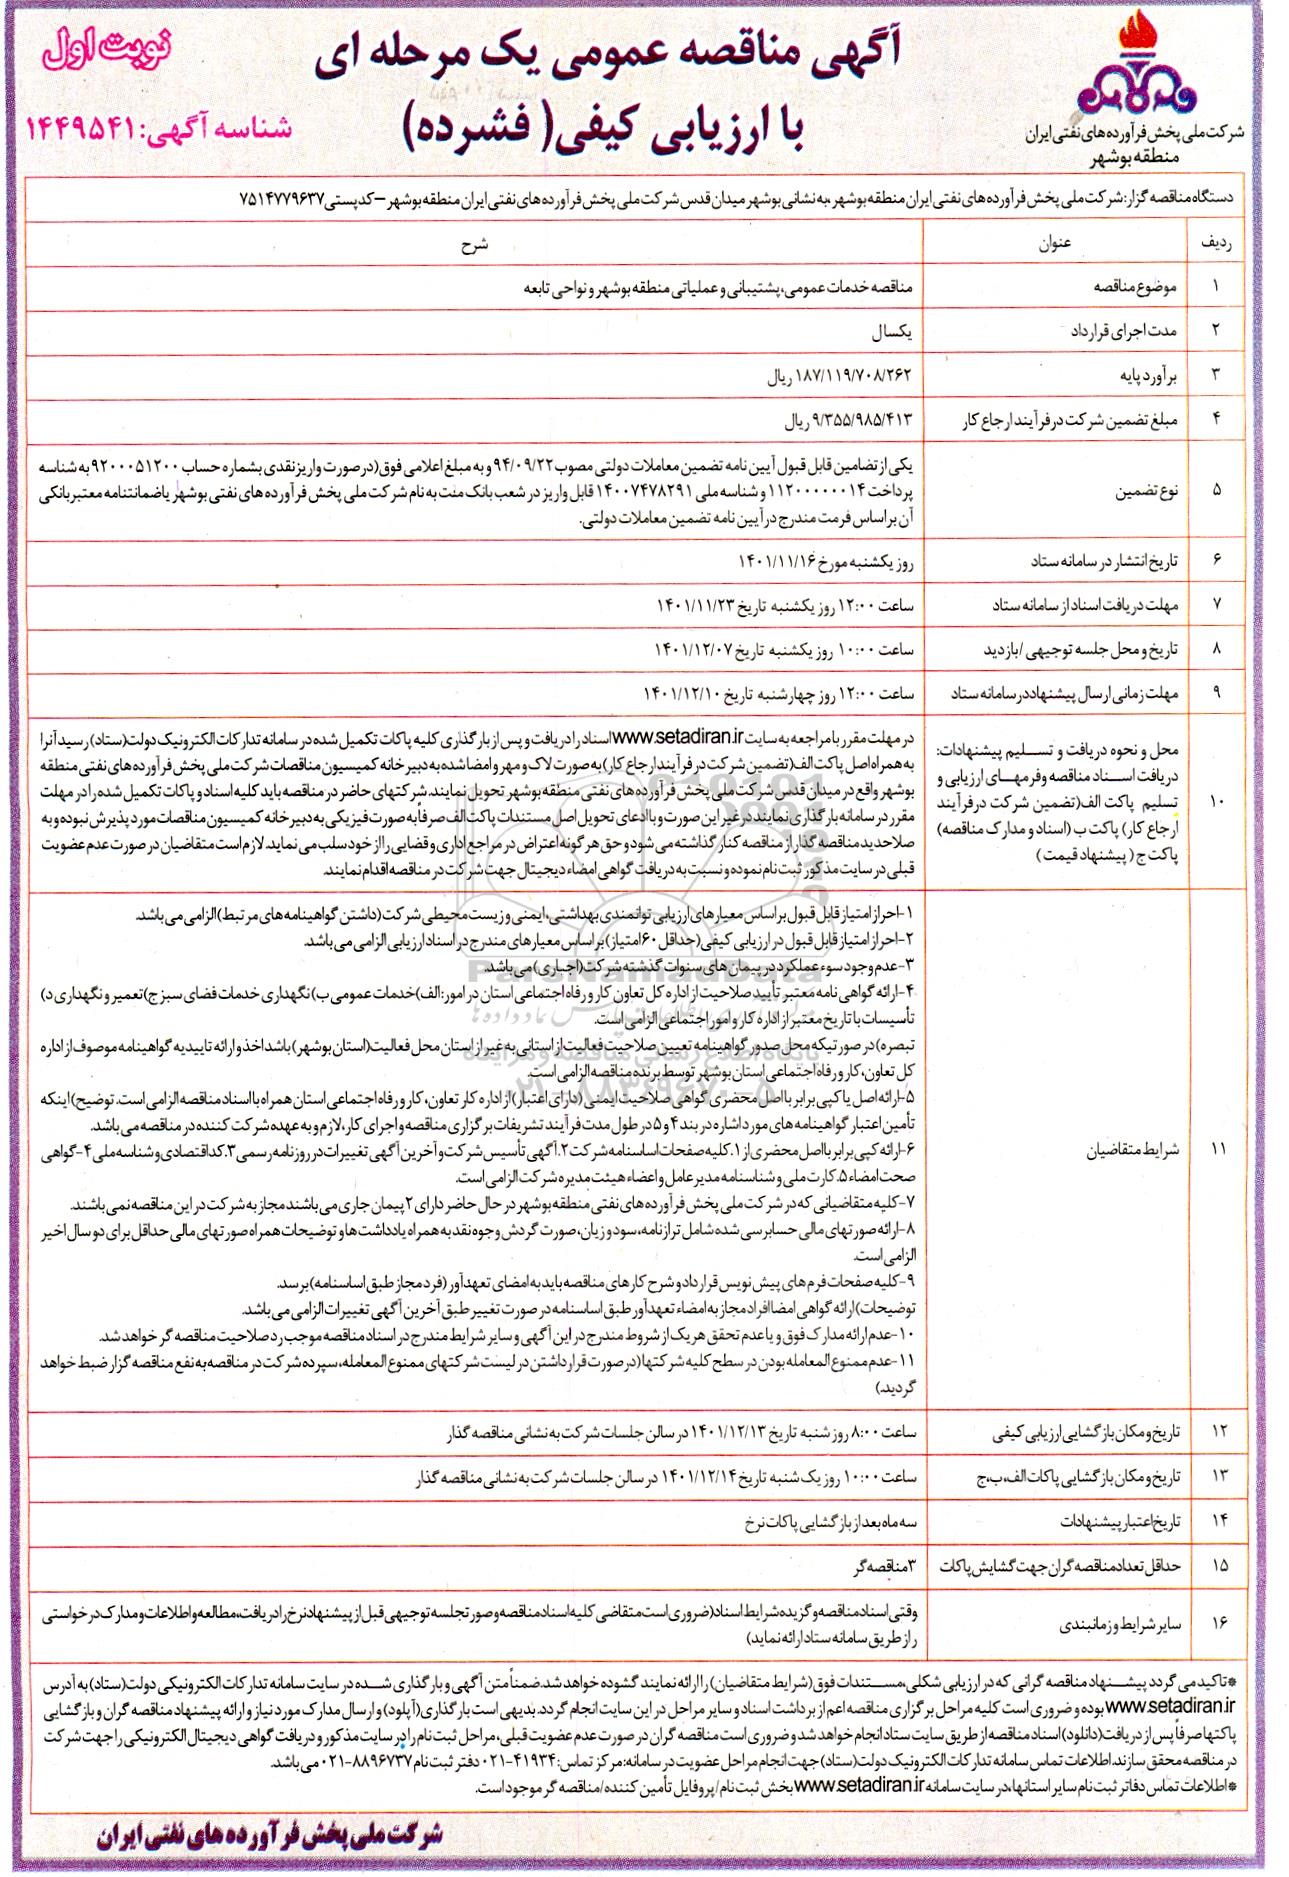 آگهی مناقصه عمومی یک مرحله ای
با ارزیابی کیفی( فشرده)
نوبت اول
شناسه آگهی: ۱۴۴۹۵۴۱
شرکت ملی پخش فرآورده‌های نفتی ایران
منطقه بوشهر
دستگاه مناقصه گزار: شرکت ملی پخش فرآورده های نفتی ایران منطقه بوشهر ،به نشانی بوشهر میدان قدس شرکت ملی پخش فرآورده های نفتی ایران منطقه بوشهر – کدپستی ۷۵۱۴۷۷۹۶۳۷
ردیف عنوان شرح
۱ موضوع مناقصه مناقصه خدمات عمومی، پشتیبانی و عملیاتی منطقه بوشهر و نواحی تابعه
۲ مدت اجرای قرارداد یکسال
۳ برآورد پایه ۱۸۷/۱۱۹/۷۰۸/۲۶۲ ریال
۴ مبلغ تضمین شرکت در فرآیند ارجاع کار ۹/۳۵۵/۹۸۵/۴۱۳ ریال
۵ نوع تضمین یکی از تضامین قابل قبول آیین نامه تضمین معاملات دولتی مصوب ۹۴/۰۹/۲۲ و به مبلغ اعلامی فوق (در صورت واریز نقدی بشماره حساب ۹۲۰۰۰۵۱۲۰۰ به شناسه
پرداخت ۱۱۲۰۰۰۰۰۰۱۴ و شناسه ملی ۱۴۰۰۷۴۷۸۲۹۱ قابل واریز در شعب بانک ملت به نام شرکت ملی پخش فرآورده های نفتی بوشهر یا ضمانتنامه معتبر بانکی
آن بر اساس فرمت مندرج در آیین نامه تضمین معاملات دولتی.
۶ تاریخ انتشار در سامانه ستاد روز یکشنبه مورخ ۱۴۰۱/۱۱/۱۶
۷ مهلت دریافت اسناد از سامانه ستاد ساعت ۱۲:۰۰ روز یکشنبه تاریخ ۱۴۰۱/۱۱/۲۳
۸ تاریخ و محل جلسه توجیهی /بازدید ساعت ۱۰:۰۰ روز یکشنبه تاریخ ۱۴۰۱/۱۲/۰۷
۹ مهلت زمانی ارسال پیشنهاد در سامانه ستاد ساعت ۱۲:۰۰ روز چهارشنبه تاریخ ۱۴۰۱/۱۲/۱۰
۱۰ محل و نحوه دریافت و تسلیم پیشنهادات:
دریافت اسناد مناقصه و فرمهای ارزیابی و
تسلیم پاکت الف(تضمین شرکت در فرآیند
ارجاع کار) پاکت ب (اسناد و مدارک مناقصه)
پاکت ج ( پیشنهاد قیمت )
در مهلت مقرر با مراجعه به سایت www.setadiran.ir اسناد را دریافت و پس از بارگذاری کلیه پاکات تکمیل شده در سامانه تدارکات الکترونیک دولت(ستاد) رسید آنرا
به همراه اصل پاکت الف(تضمین شرکت در فرآیند ارجاع کار) به صورت لاک و مهر و امضا شده به دبیرخانه کمیسیون مناقصات شرکت ملی پخش فرآورده های نفتی منطقه
بوشهر واقع در میدان قدس شرکت ملی پخش فرآورده های نفتی منطقه بوشهر تحویل نمایند. شرکتهای حاضر در مناقصه باید کلیه اسناد و پاکات تکمیل شده را در مهلت
مقرر در سامانه بارگذاری نمایند در غیر این صورت و با ادعای تحویل اصل مستندات پاکت الف صرفاً به صورت فیزیکی به دبیرخانه کمیسیون مناقصات مورد پذیرش نبوده و به
صلاحدید مناقصه گذار از مناقصه کنار گذاشته می شود و حق هرگونه اعتراض در مراجع اداری و قضایی را از خود سلب می نماید. لازم است متقاضیان در صورت عدم عضویت
قبلی در سایت مذکور ثبت نام نموده و نسبت به دریافت گواهی امضاء دیجیتال جهت شرکت در مناقصه اقدام نمایند.
۱۱ شرایط متقاضیان
۱-احراز امتیاز قابل قبول بر اساس معیارهای ارزیابی توانمندی بهداشتی، ایمنی و زیست محیطی شرکت (داشتن گواهینامه های مرتبط) الزامی می باشد.
۲-احراز امتیاز قابل قبول در ارزیابی کیفی (حداقل ۶۰امتیاز) بر اساس معیارهای مندرج در اسناد ارزیابی الزامی می باشد.
۳-عدم وجود سوء عملکرد در پیمان های سنوات گذشته شرکت (اجباری) می باشد.
۴-ارائه گواهی نامه معتبر تأیید صلاحیت از اداره کل تعاون کار و رفاه اجتماعی استان در امور: الف)خدمات عمومی ب) نگهداری خدمات فضای سبز ج) تعمیر و نگهداری د)
تأسیسات با تاریخ معتبر از اداره کار و امور اجتماعی الزامی است.
تبصره) در صورتیکه محل صدور گواهینامه تعیین صلاحیت فعالیت از استانی به غیر از استان محل فعالیت(استان بوشهر) باشد اخذ و ارائه تاییدیه گواهینامه موصوف از اداره
کل تعاون، کار و رفاه اجتماعی استان بوشهر توسط برنده مناقصه الزامی است.
۵-ارائه اصل یا کپی برابر با اصل محضری گواهی صلاحیت ایمنی (دارای اعتبار) از اداره کار تعاون، کار و رفاه اجتماعی استان همراه با اسناد مناقصه الزامی است. توضیح) اینکه
تأمین اعتبار گواهینامه های مورد اشاره در بند ۴ و ۵ در طول مدت فرآیند تشریفات برگزاری مناقصه و اجرای کار، لازم و به عهده شرکت کننده در مناقصه می باشد.
۶-ارائه کپی برابر با اصل محضری از ۱.کلیه صفحات اساسنامه شرکت ۲.آگهی تأسیس شرکت و آخرین آگهی تغییرات در روزنامه رسمی ۳.کد اقتصادی و شناسه ملی ۴-گواهی
صحت امضاء ۵.کارت ملی و شناسنامه مدیر عامل و اعضاء هیئت مدیره شرکت الزامی است.
۷-کلیه متقاضیانی که در شرکت ملی پخش فرآورده های نفتی منطقه بوشهر در حال حاضر دارای ۲ پیمان جاری می باشند مجاز به شرکت در این مناقصه نمی باشند.
۸-ارائه صورتهای مالی حسابرسی شده شامل ترازنامه، سود و زیان، صورت گردش وجوه نقد به همراه یادداشت ها و توضیحات همراه صورتهای مالی حداقل برای دو سال اخیر
الزامی است.
۹-کلیه صفحات فرم های پیش نویس قرارداد و شرح کارهای مناقصه باید به امضای تعهدآور (فرد مجاز طبق اساسنامه) برسد.
توضیحات) ارائه گواهی امضا افراد مجاز به امضاء تعهدآور طبق اساسنامه در صورت تغییر طبق آخرین آگهی تغییرات الزامی می باشد.
۱۰-عدم ارائه مدارک فوق و یا عدم تحقق هر یک از شروط مندرج در این آگهی و سایر شرایط مندرج در اسناد مناقصه موجب رد صلاحیت مناقصه گر خواهد شد.
۱۱-عدم ممنوع المعامله بودن در سطح کلیه شرکتها (در صورت قرار داشتن در لیست شرکتهای ممنوع المعامله، سپرده شرکت در مناقصه به نفع مناقصه گزار ضبط خواهد
گردید.)
۱۲ تاریخ و مکان بازگشایی ارزیابی کیفی ساعت ۸:۰۰ روز شنبه تاریخ ۱۴۰۱/۱۲/۱۳ در سالن جلسات شرکت به نشانی مناقصه گذار
۱۳ تاریخ و مکان بازگشایی پاکات الف،ب،ج ساعت ۱۰:۰۰ روز یک شنبه تاریخ ۱۴۰۱/۱۲/۱۴ در سالن جلسات شرکت به نشانی مناقصه گذار
۱۴ تاریخ اعتبار پیشنهادات سه ماه بعد از بازگشایی پاکات نرخ
۱۵ حداقل تعداد مناقصه گران جهت گشایش پاکات ۳مناقصه گر
۱۶ سایر شرایط و زمانبندی وقتی اسناد مناقصه و گزیده شرایط اسناد (ضروری است متقاضی کلیه اسناد مناقصه و صورتجلسه توجیهی قبل از پیشنهاد نرخ را دریافت، مطالعه و اطلاعات و مدارک درخواستی
را از طریق سامانه ستاد ارائه نماید)
*تاکید می گردد پیشنهاد مناقصه گرانی که در ارزیابی شکلی،مستندات فوق (شرایط متقاضیان) را ارائه نمایند گشوده خواهد شد.ضمناً متن آگهی و بارگذاری شده در سایت سامانه تدارکات الکترونیکی دولت(ستاد) به آدرس
www.setadiran.ir بوده و ضروری است کلیه مراحل برگزاری مناقصه اعم از برداشت اسناد و سایر مراحل در این سایت انجام گردد. بدیهی است بارگذاری (آپلود) و ارسال مدارک مورد نیاز و ارائه پیشنهاد مناقصه گران و بازگشایی
پاکتها صرفاً پس از دریافت (دانلود) اسناد مناقصه از طریق سایت ستاد انجام خواهد شد و ضروری است مناقصه گران در صورت عدم عضویت قبلی، مراحل ثبت نام را در سایت مذکور و دریافت گواهی دیجیتال الکترونیکی را جهت شرکت
در مناقصه محقق سازند. اطلاعات تماس سامانه تدارکات الکترونیک دولت (ستاد) جهت انجام مراحل عضویت در سامانه: مرکز تماس: ۰۲۱-۴۱۹۳۴ دفتر ثبت نام ۰۲۱-۸۸۹۶۷۳۷ می باشد.
*اطلاعات تماس دفاتر ثبت نام سایر استانها، در سایت سامانه www.setadiran.ir بخش ثبت نام/پروفایل تأمین کننده/مناقصه گر موجود است.
شرکت ملی پخش فرآورده های نفتی ایران
ParsNamadData